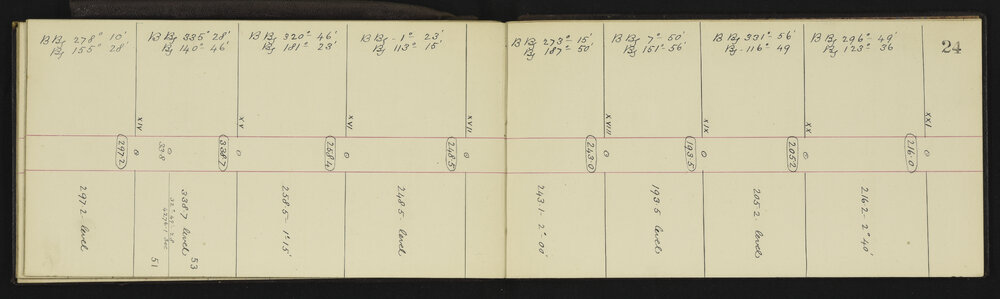 B Bg 278° 10'
Bg 155° 28'
B Bg 335° 28'
Bg 140° 46'
B Bg 320° 46'
Bg 181° 23'
B Bg - 1° 23'
Bg 113° 15'
B Bg 273° 15'
Bg 187° 50'
B Bg 7° 50'
Bg 151° 56'
B Bg 331° 56'
Bg 116° 49
B Bg 296° 49'
Bg 123° 36
24
XIV
XV
XVI
XVII
XVIII
XIX
XX
XXI
297.2
0
32.8
0
338.7
0
258.4
0
248.5
0
243.0
0
193.5
0
205.2
0
216.0
0
297.2 level
338.7 level
51
53
258.5 - 1° 15'
248.5 - level
243.1 - 2° 00'
193.5 level
205.2 - level
216.2 - 2° 40'